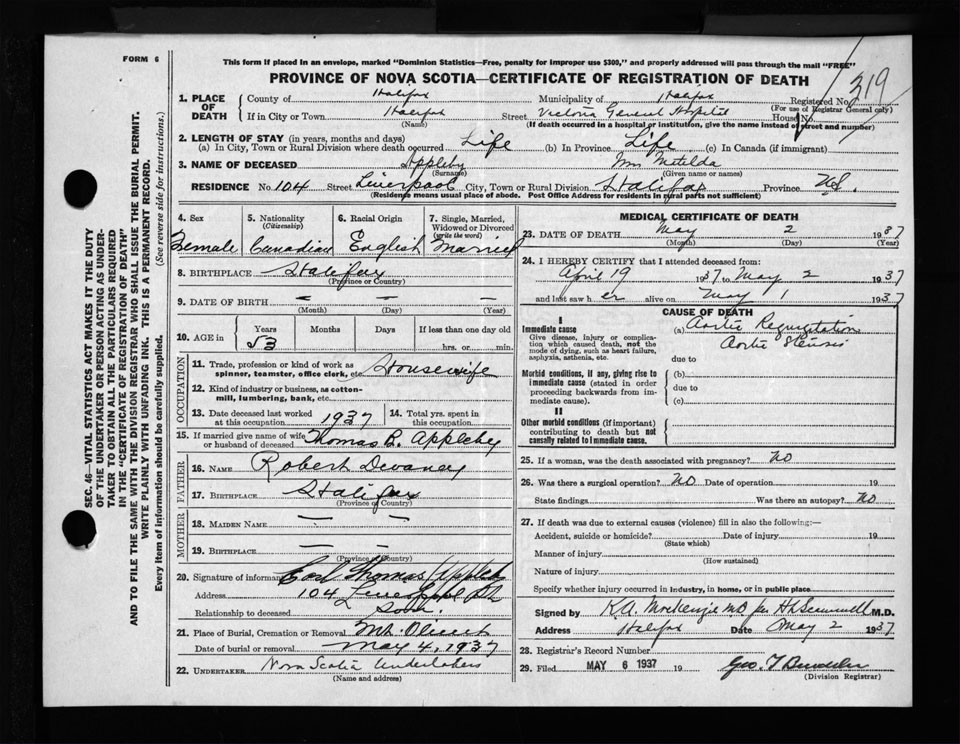 FORM 6
This form if placed in an envelope, marked "Dominion Statistics—Free, penalty for improper use $300," and properly addressed will pass through the mail "FREE"
PROVINCE OF NOVA SCOTIA—CERTIFICATE OF REGISTRATION OF DEATH
319
1. PLACE OF DEATH
County of Halifax Municipality of Halifax Registered No.
(For use of Registrar General only)
If in City or Town Halifax Street Victoria General Hospital House No.
(Name) (If death occurred in a hospital or institution, give the name instead of street and number)
2. LENGTH OF STAY (in years, months and days)
(a) In City, Town or Rural Division where death occurred Life (b) In Province Life (c) In Canada (if immigrant)
3. NAME OF DECEASED Appleby Mrs Matilda
(Surname) (Given name or names)
RESIDENCE No. 104 Street Liverpool City, Town or Rural Division Halifax Province N.S.
(Residents means usual place of abode. Post Office Address for Residents in rural parts not sufficient)
SEC. 46—VITAL STATISTICS ACT MAKES IT THE DUTY
OF THE UNDERTAKER OR PERSON ACTING AS UNDER-
TAKER TO OBTAIN ALL THE PARTICULARS REQUIRED
IN THE "CERTIFICATE OF REGISTRATION OF DEATH"
AND TO FILE THE SAME WITH THE DIVISION REGISTRAR WHO SHALL ISSUE THE BURIAL PERMIT.
WRITE PLAINLY WITH UNFADING INK. THIS IS A PERMANENT RECORD.
Every item of information should be carefully supplied. (See reverse side for instructions.)
4. Sex
Female
5. Nationality
(Citizenship)
Canadian
6. Racial Origin
English
7. Single, Married, Widowed or Divorced
(write the word)
Married
8. BIRTHPLACE Halifax
(Province or Country)
9. DATE OF BIRTH — — —
(Month) (Day) (Year)
10. AGE in Years Months Days If less than one day old
53 hrs. or min.
OCCUPATION
11. Trade, profession or kind of work as
spinner, teamster, office clerk, etc. Housewife
12. Kind of industry or business, as cotton-
mill, lumbering, bank, etc.
13. Date deceased last worked
at this occupation 1937
14. Total yrs. spent in
this occupation
15. If married give name of wife
or husband of deceased Thomas B. Appleby
FATHER
16. NAME Robert Devaney
17. BIRTHPLACE Halifax
(Province of Country)
MOTHER
18. MAIDEN NAME — —
19. BIRTHPLACE — —
(Province or Country)
20. Signature of informant Thomas Appleby
Address 104 Liverpool St
Relationship to deceased Son.
21. Place of Burial, Cremation or Removal Mt. Olivet
Date of burial or removal May 4, 1937
22. UNDERTAKER Nova Scotia Undertakers
(Name and address)
MEDICAL CERTIFICATE OF DEATH
23. DATE OF DEATH May 2 1937
(Month) (Day) (Year)
24. I HEREBY CERTIFY that I attended deceased from:
April 19 1937 to May 2 1937
and last saw her alive on May 1 1937
CAUSE OF DEATH
I
Immediate cause
Give disease, injury or complica-
tion which caused death, not the
mode of dying, such as heart failure,
asphyxia, asthenia, etc.
(a) Aortic Regurgitation
Aortic Stenosis
due to
Morbid conditions, if any, giving rise to
immediate cause (stated in order
proceeding backwards from im-
mediate cause).
(b)
due to
(c)
II
Other morbid conditions (if important)
contributing to death but not
causally related to immediate cause.
25. If a woman, was the death associated with pregnancy? No
26. Was there a surgical operation? No Date of operation 19
State findings Was there an autopsy? No
27. If death was due to external causes (violence) fill in also the following:—
Accident, suicide or homicide? Date of injury 19
(State which)
Manner of injury
(How sustained)
Nature of injury
Specify whether injury occurred in industry, in home, or in public place
Signed by K.A. MacKenzie MD per M.D.
Address Halifax Date May 2 1937
28. Registrar's Record Number
29. Filed MAY 6 1937 19
(Division Registrar)